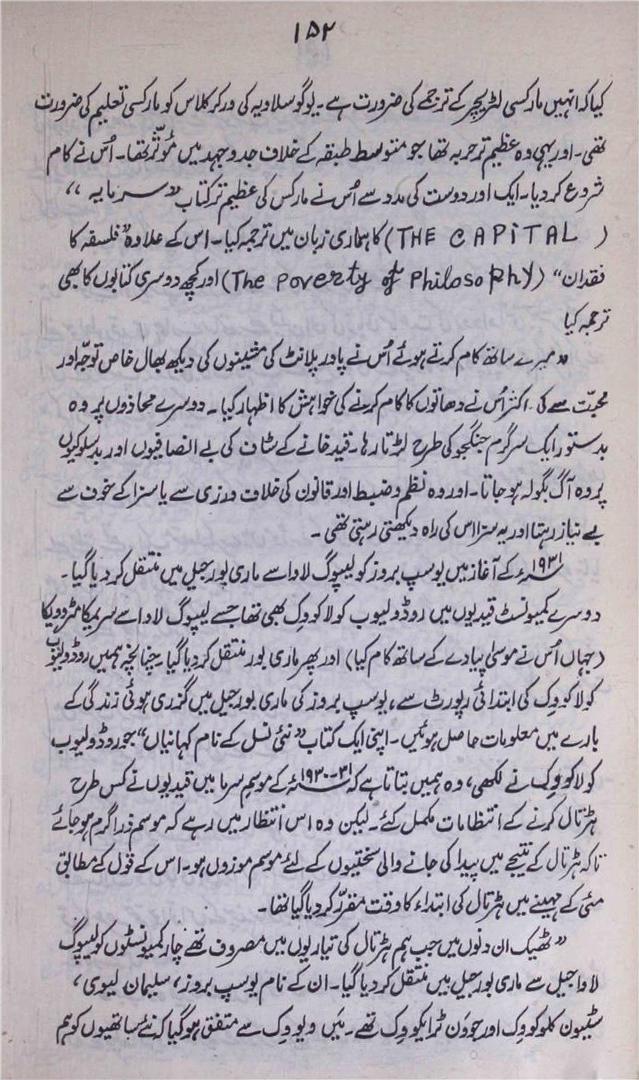 ۱۵۲
کیا کہ انہیں مارکسی لٹریچر کے ترجمے کی ضرورت ہے۔ یوگوسلاویہ کی ورکر کلاس کو مارکسی تعلیم کی ضرورت
تھی۔ اور یہی وہ عظیم تر حربہ تھا جو متوسط طبقہ کے خلاف جدوجہد میں مُوثّر تھا۔ اُس نے کام
شروع کر دیا۔ ایک اور دوست کی مدد سے اُس نے مارکس کی عظیم تر کتاب "سرمایہ"
(THE CAPITAL) کا ہماری زبان میں ترجمہ کیا۔ اس کے علاوہ "فلسفہ کا
فقدان" (The Poverty of Philosophy) اور کچھ دوسری کتابوں کا بھی
ترجمہ کیا
"میرے ساتھ کام کرتے ہوئے اُس نے پاور پلانٹ کی مشینوں کی دیکھ بھال خاص توجّہ اور
محبّت سے کی۔ اکثر اُس نے دھاتوں کا کام کرنے کی خواہش کا اظہار کیا۔ دوسرے محاذوں پر وہ
بدستور ایک سرگرم جنگجو کی طرح لڑتا رہا۔ قید خانے کے سٹاف کی بے انصافیوں اور بدسلوکیوں
پر وہ آگ بگولہ ہو جاتا۔ اور وہ نظم و ضبط اور قانون کی خلاف ورزی سے یا سزا کے خوف سے
بے نیاز رہتا اور یہ سزا اس کی راہ دیکھتی رہتی تھی۔
۱۹۳۱ء کے آغاز میں یوسپ بروز کو لیپوگ لاوا سے ماری بور جیل میں منتقل کر دیا گیا۔
دوسرے کمیونسٹ قیدیوں میں روڈولیوب کولاکووک بھی تھا جسے لیپوگ لاوا سے سریمکا مٹرووکا
(جہاں اُس نے موسیٰ پیادے کے ساتھ کام کیا) اور پھر ماری بور منتقل کر دیا گیا۔ چنانچہ ہمیں روڈولیوب
کولاکووک کی ابتدائی رپورٹ سے، یوسپ بروز کی ماری بور جیل میں گزری ہوئی زندگی کے
بارے میں معلومات حاصل ہوئیں۔ اپنی ایک کتاب "نئی نسل کے نام کہانیاں" جو روڈولیوب
کولاکووک نے لکھی، وہ ہمیں بتاتا ہے کہ ۳۱-۱۹۳۰ء کے موسم سرما میں قیدیوں نے کس طرح
ہڑتال کرنے کے انتظامات مکمل کئے۔ لیکن وہ اس انتظار میں رہے کہ موسم ذرا گرم ہو جائے
تاکہ ہڑتال کے نتیجے میں پیدا کی جانے والی سختیوں کے لئے موسم موزوں ہو۔ اس کے قول کے مطابق
مئی کے مہینے میں ہڑتال کی ابتداء کا وقت مقرّر کر دیا گیا تھا۔
"ٹھیک ان دنوں میں جب ہم ہڑتال کی تیاریوں میں مصروف تھے چار کمیونسٹوں کو لیپوگ
لاوا جیل سے ماری بور جیل میں منتقل کر دیا گیا۔ ان کے نام یوسپ بروز، سلیمان لیوی،
سٹیون کلوکووک اور جووَن ٹراٹیکووک تھے۔ میَں ویووک سے متفق ہو گیا کہ نئے ساتھیوں کو ہم